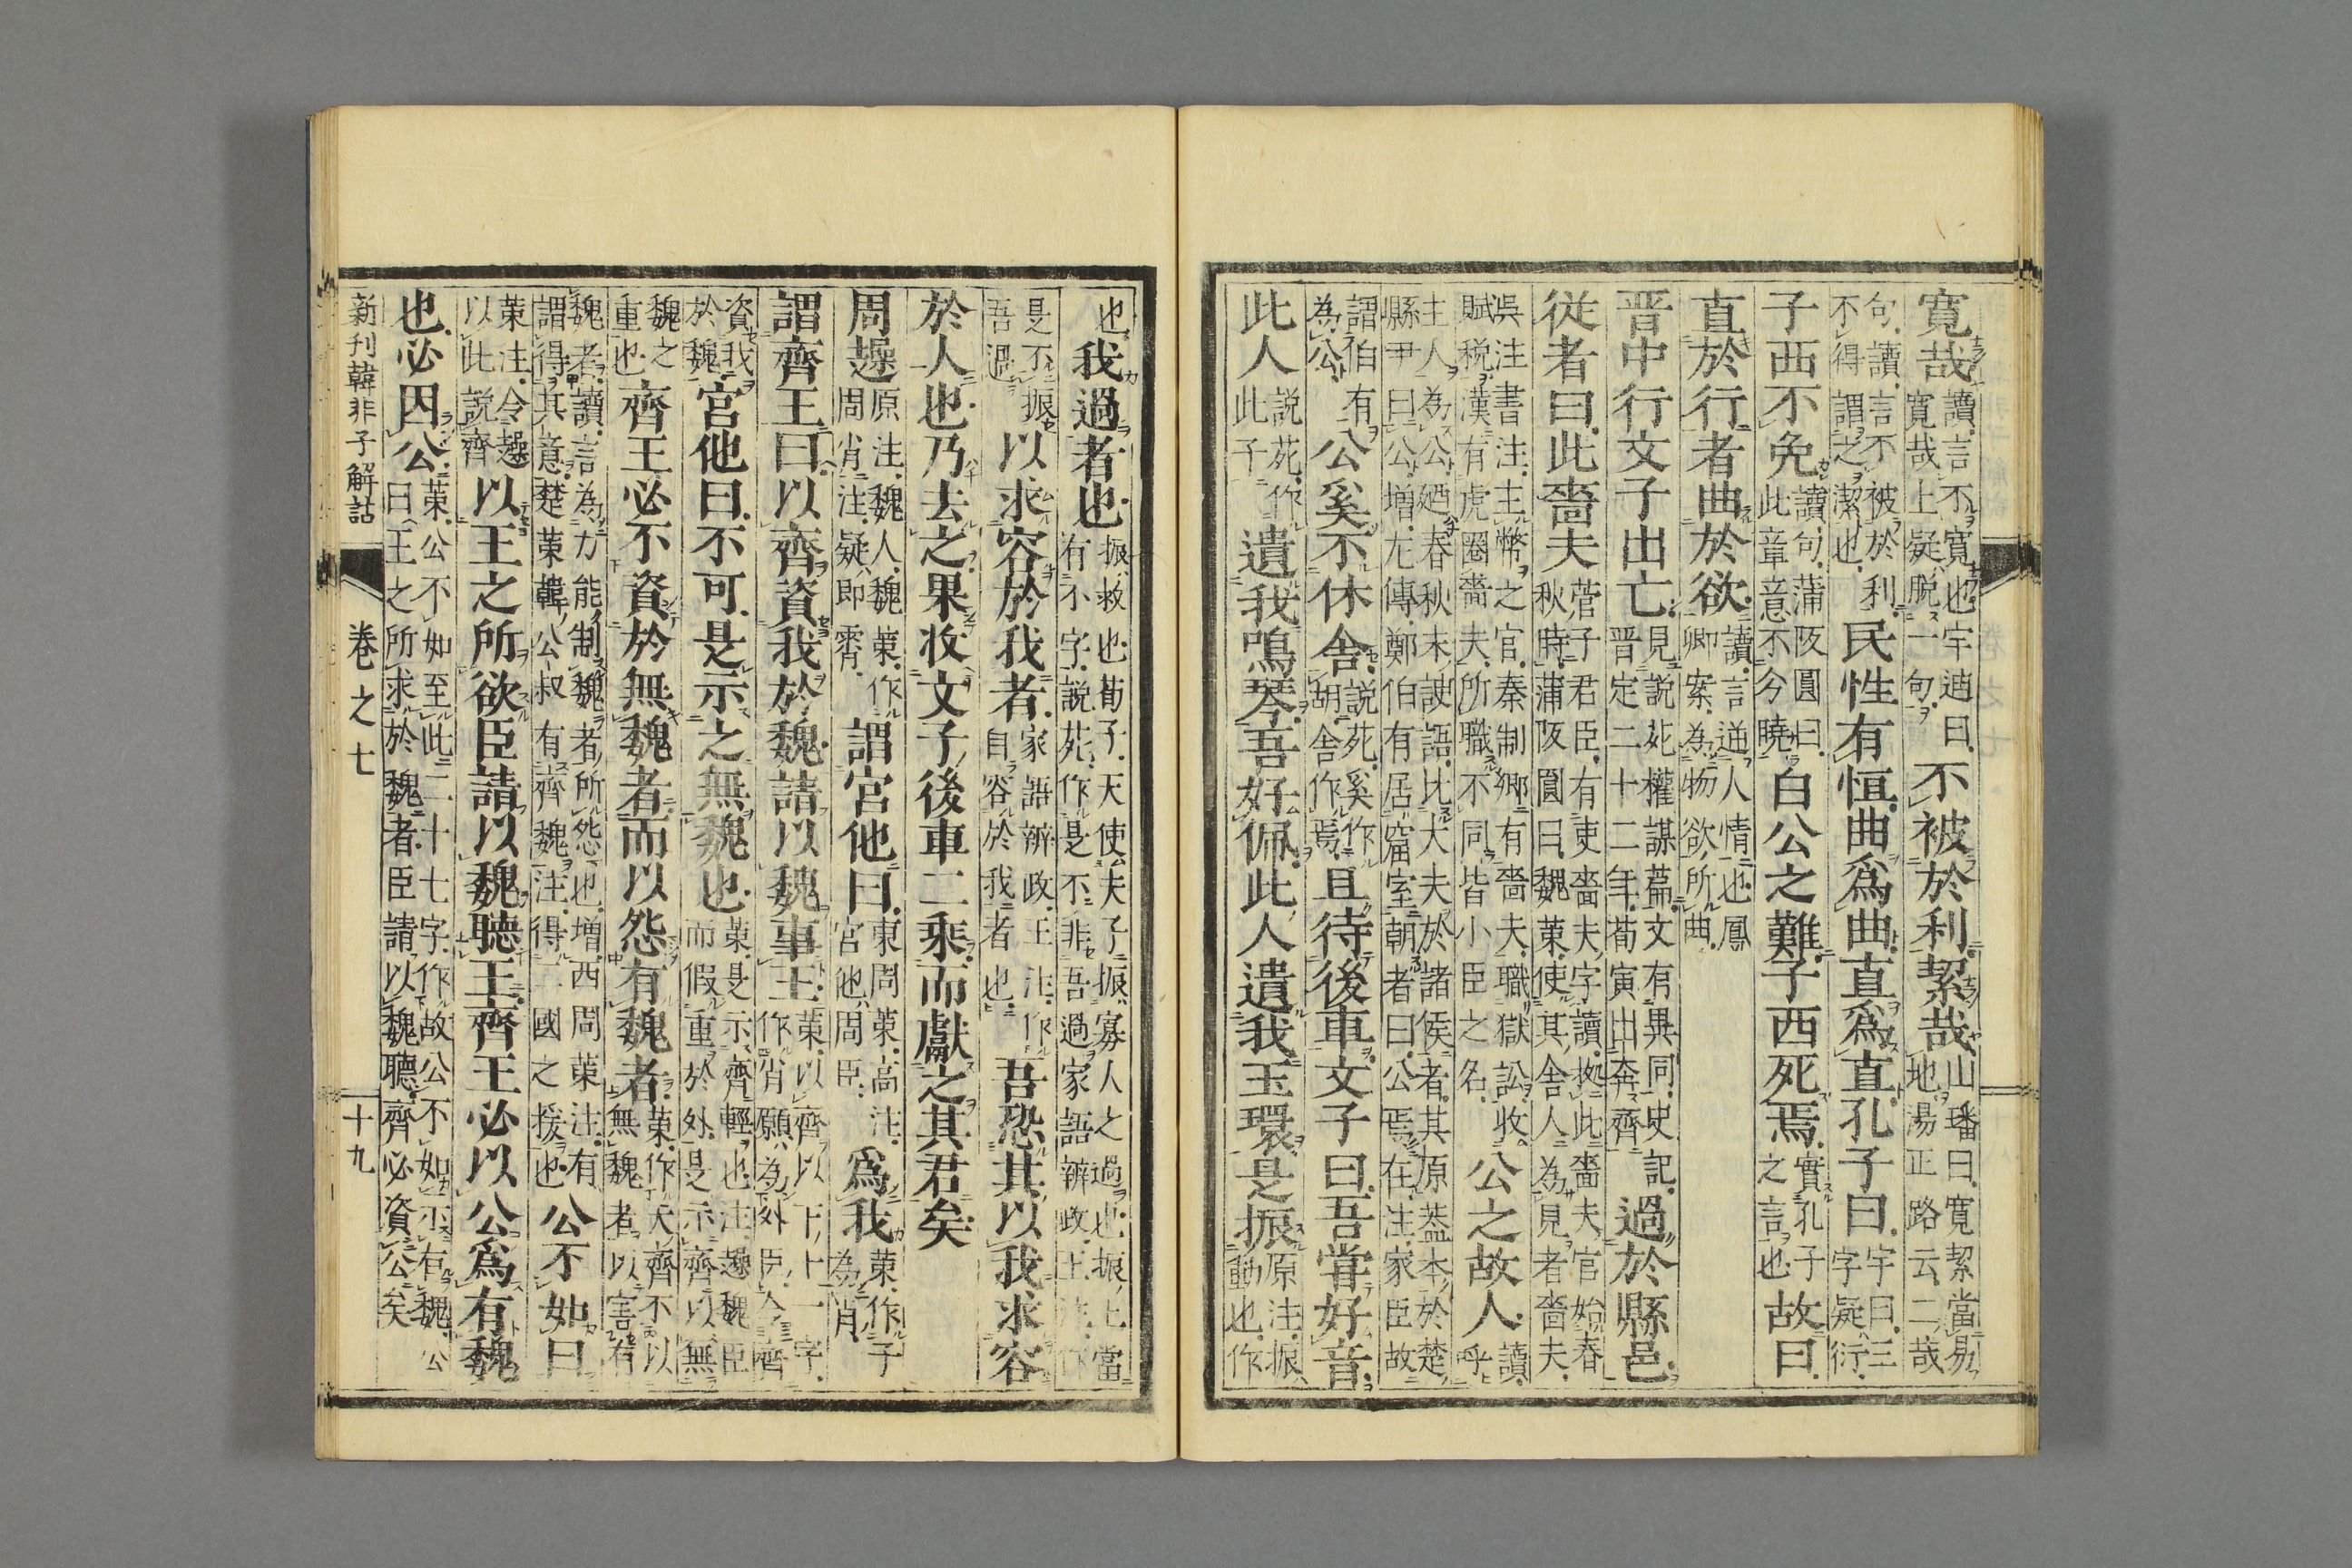 寛哉讀言不寛也宇迪曰寛哉上疑脱一句不被於利絜哉山璠曰寛絜當易地湯正路云二哉
句讀言不被於利不得謂之潔也民性有恒曲爲曲直爲直孔子曰宇曰三字疑衍
子西不免讀句蒲阪圓曰此章意不今曉白公之難子西死焉實孔子之言也故曰
直於行者曲於欲讀言逆人情也鳳卿案為物欲所曲
晋中行文子出亡見説苑權謀篇文有異同史記晋定二十二年荀寅出奔齊過於縣邑
従者曰此嗇夫菅子君臣有吏嗇夫字讀拠此嗇夫官始春秋時蒲阪圓曰魏策使其舎人為見者嗇夫
呉注書注主幣之官秦制郷有嗇夫職獄訟收賦税漢有虎圏嗇夫所職不同皆小臣之名公之故人讀呼
主人為公廼春秋末諛語比大夫於諸侯者其原葢本於楚縣尹曰公増左傳鄭伯有居窟室朝者曰公焉在注家臣故
謂伯有為公公奚不休舎説苑奚作胡舎作焉且待後車文子曰吾甞好音
此人説苑作此子遺我鳴琴吾好佩此人遺我玉環是振原注振動也作
也我過者也振救也荀子天使夫子振寡人之過也振上當有不字説苑作是不非吾過家語辨政王注作
是不振吾過以求容於我者家語辨政王注作自容於我者也吾恐其以我求容
於人也乃去之果收文子後車二乘而獻之其君矣
周趮原注魏人魏策作周肖注疑即霄謂宮他曰東周策高注宮他周臣為我策作子為肖
謂齊王曰以齊資我於魏請以魏事王策以齊以下十一字作肖願為外臣令齊
資我於魏宮他曰不可是示之無魏也策是示齊輕也注趮魏臣而假重於外是示齊以無
魏之重也齊王必不資於無魏者而以怨有魏者策作夫齊不以無魏者以害有
魏者讀言為力能制魏者所怨也増西周策注有謂得其意楚策韓公叔有齊魏注得二國之援也公不如曰
策注令趮以此説齊以王之所欲臣請以魏聽王齊王必以公爲有魏
也必因公策公不如至此二十七字作故公不如示有魏公曰王之所求於魏者臣請以魏聽齊必資公矣
新刊韓非子解詁 卷之七 十九